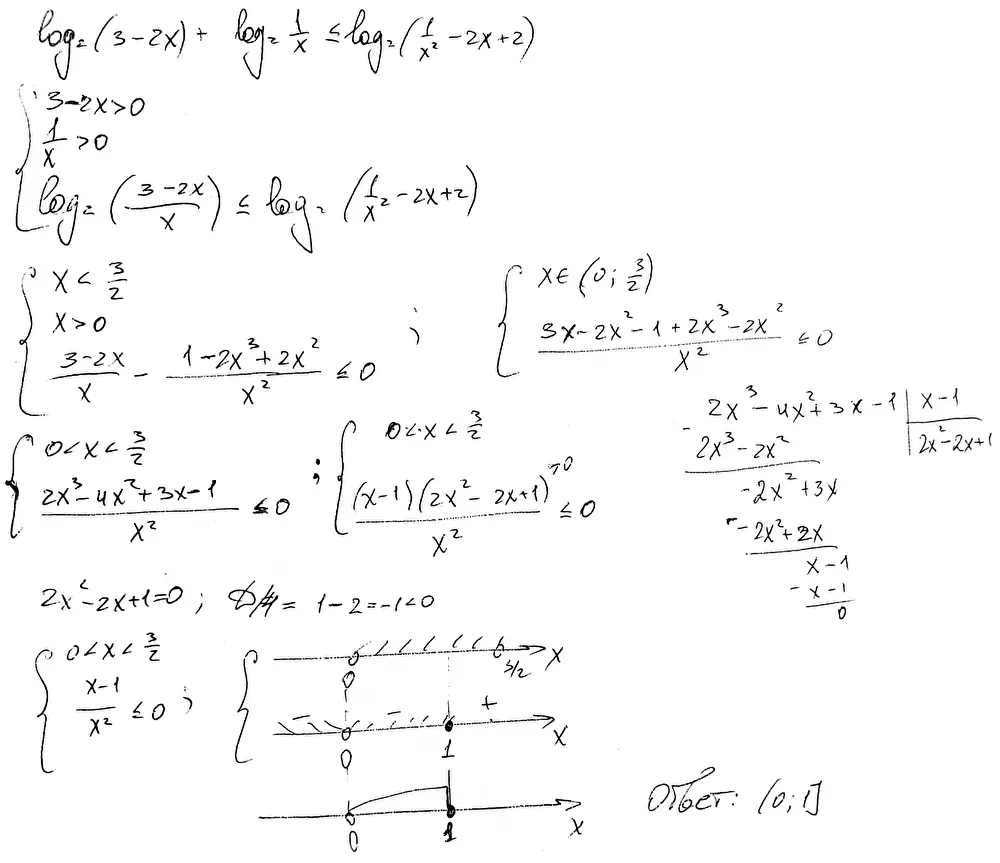 log₂(3-2x) + log₂ 1/x ≤ log₂(1/x² - 2x + 2)
3-2x>0
1/x >0
log₂((3-2x)/x) ≤ log₂(1/x² - 2x+2)
x < 3/2
x>0
(3-2x)/x - (1-2x³+2x²)/x² ≤ 0 ;
x∈(0; 3/2)
(3x-2x²-1+2x³-2x²)/x² ≤ 0
0<x<3/2
(2x³-4x²+3x-1)/x² ≤ 0 ;
0<x<3/2
((x-1)(2x²-2x+1))/x² ≤ 0
>0
2x³-4x²+3x-1 | x-1
- 2x³-2x² | 2x²-2x+1
-2x²+3x
- -2x²+2x
x-1
- x-1
0
2x²-2x+1=0 ; D/4 = 1-2=-1<0
0<x<3/2
(x-1)/x² ≤ 0 ;
0 3/2 x
- - +
0 1 x
0 1 x
Ответ: (0;1]